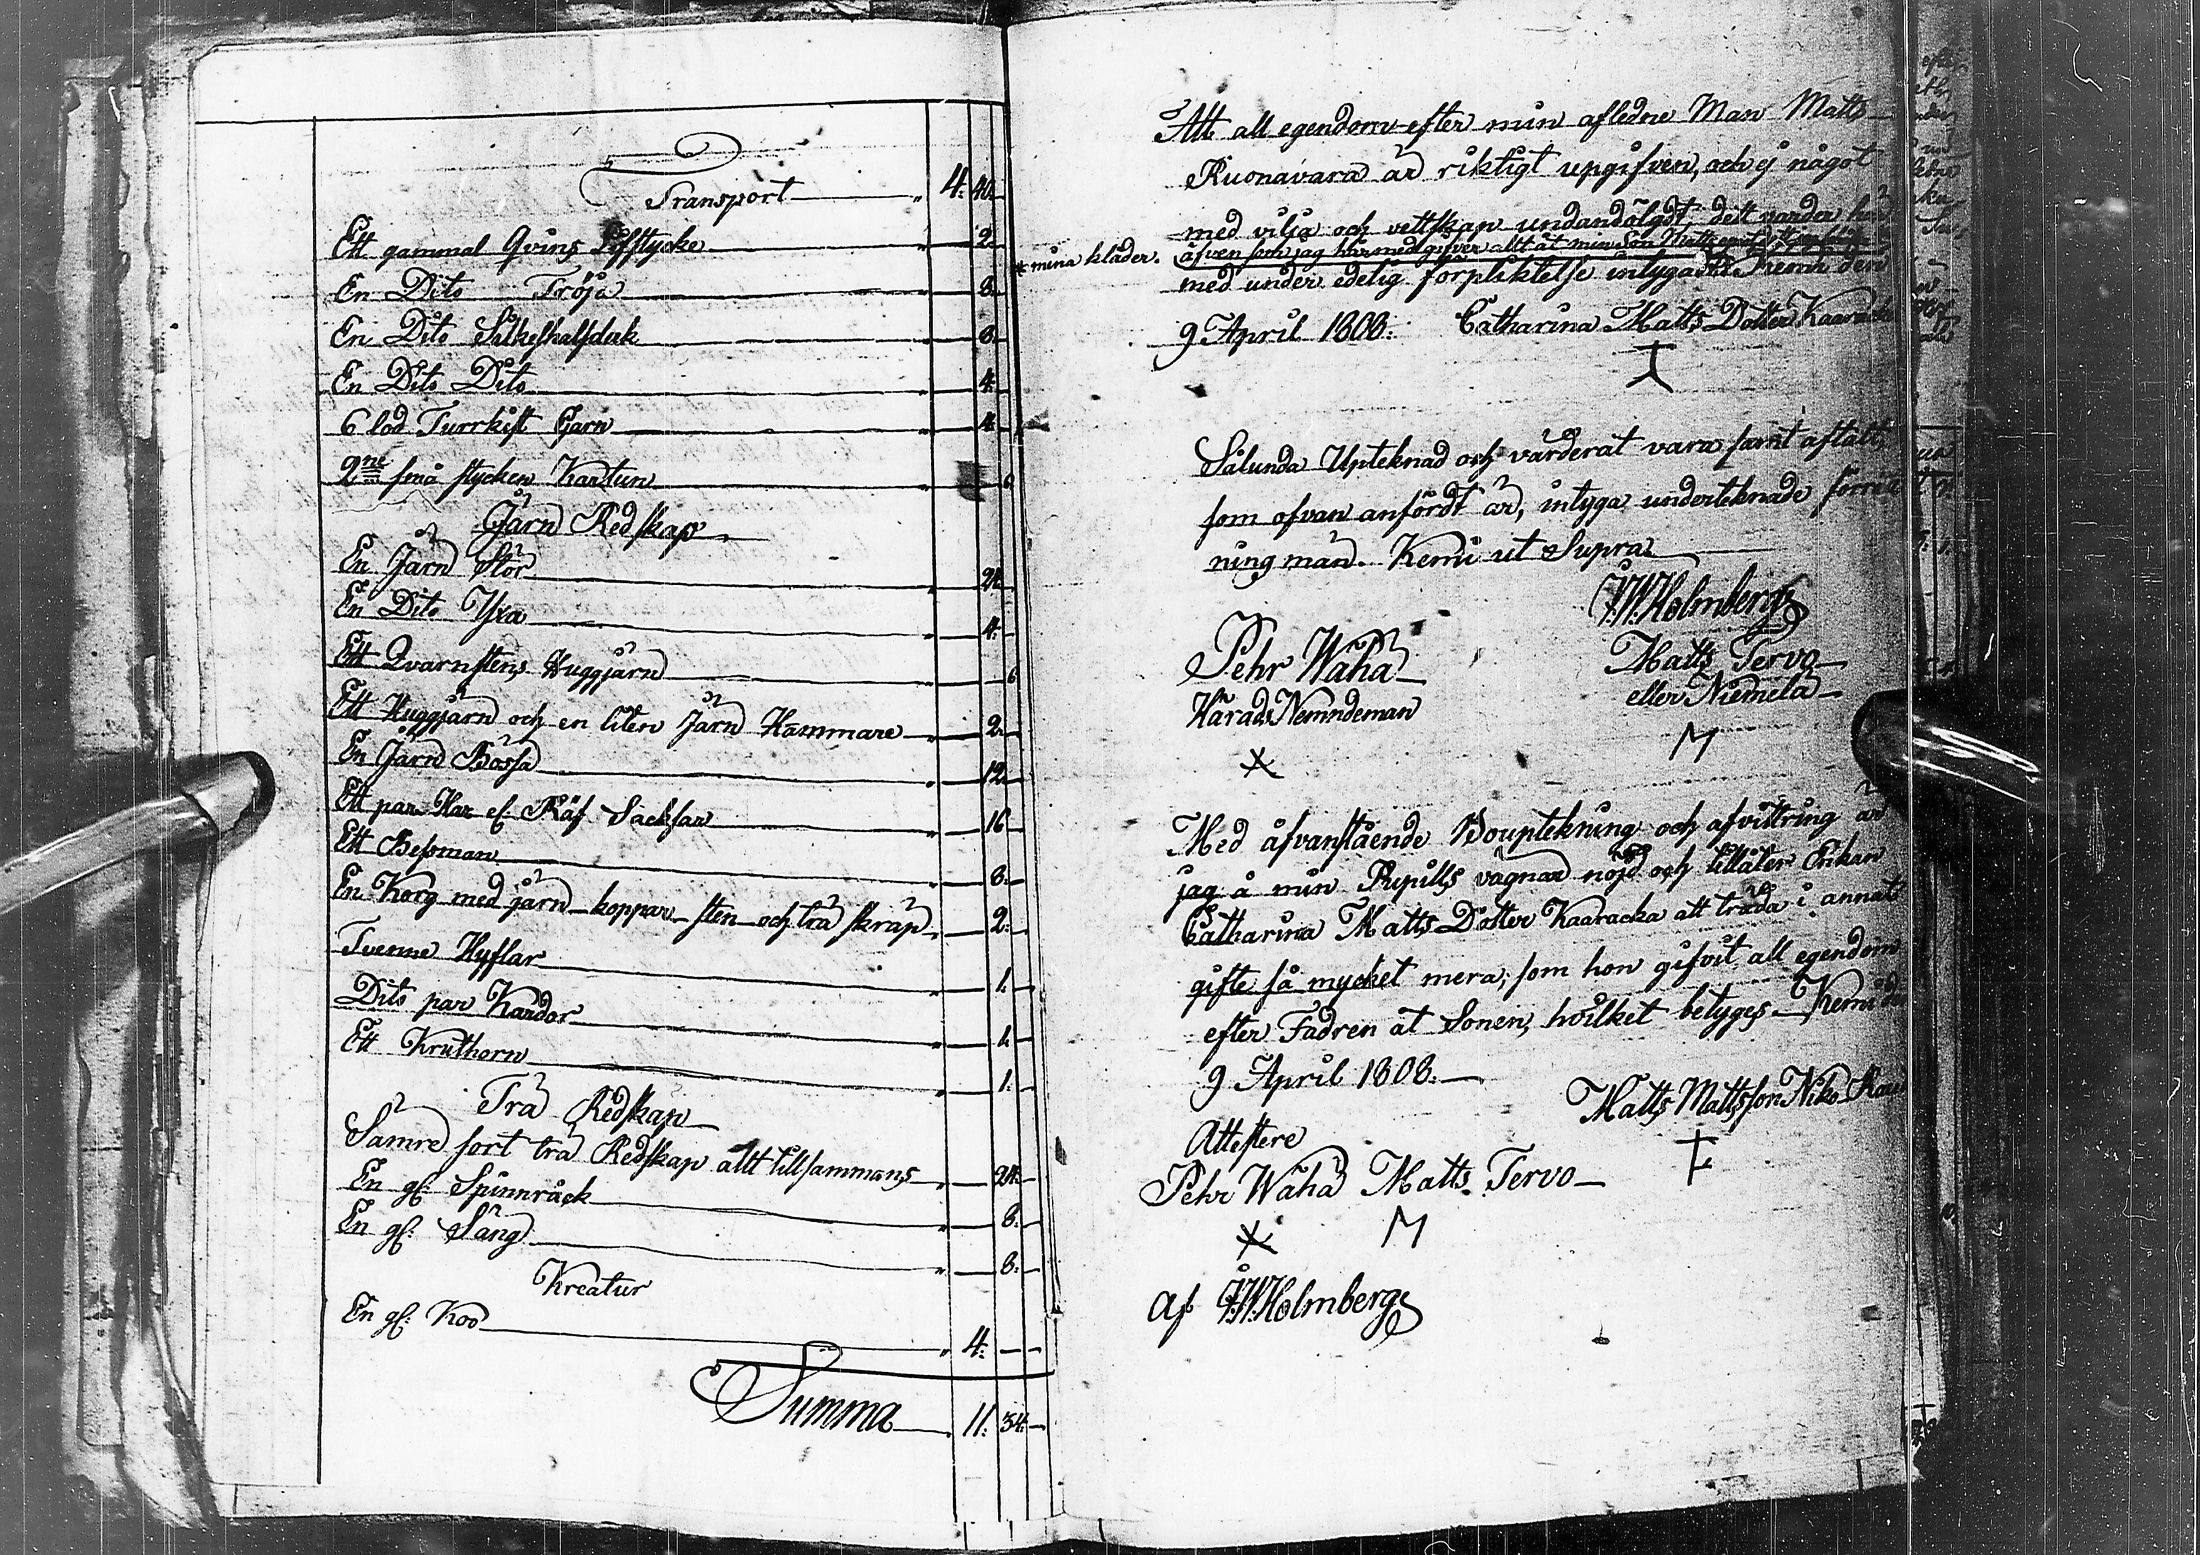 Transport 4. 40.
Ett gammal Qvins Lifstycke 2.
En Dito Tröja 8.
En Dito Silkeshalsduk 8.
En Dito Dito 4.
6 lod Turrkist Garn 4.
2ne små stycken Kartun 6
Järn Redskap
En Järn Stör 24.
En Dito Yxa 4.
Ett Qvarnstens Huggjärn 6
Ett Huggjärn och en liten Järn Hammare 2.
En Järn Bössa 12.
Ett par Har el. Räf Sacksar 16
Ett Besman 8.
En Korg med järn koppar sten och trä skräp 2.
Tvenne Hyflar 1.
Dito par Kardor 1.
Ett Kruthorn 1.
Trä Redskap
Sämre sort trä Redskap allt tillsammans 24.
En gl: Spinnråck 8.
En gl: Säng 8.
Kreatur
En gl: Koo 4.
Summa 11. 34.
Att all egendom efter min afledne Man Matts
Ruonavara är riktigt upgifven, och ej något
med vilja och vettskap undandölgdt, dett varder här
* mina kläder. äfven som jag härmed gifver allt åt min Son Matts
med under edelig förpliktelse intygadt Kemi den
9 April 1808. Catharina Matts Dotter Kaaracka
Sålunda Upteknad och värderat vara samt aftalt
som ofvan anfördt är, intyga underteknade förrätt
ningmän. Kemi ut Supra
J.W.Holmberg
Pehr Wähä Matts Tervo
Härads Nemndeman eller Niemelä
M
Med åfvanstående Bouptekning och afvittring är
jag å min Pupills vägnar nöjd och tillåter Enkan
Catharina Matts Dotter Kaaracka att träda i annat
gifte så mycket mera, som hon gifvit all egendom
efter Fadren åt Sonen, hvilket betyges Kemi den
9 April 1808.
Matts Mattsson Niko
Attestere
Pehr Wähä Matts Tervo
M
af J.W.Holmberg